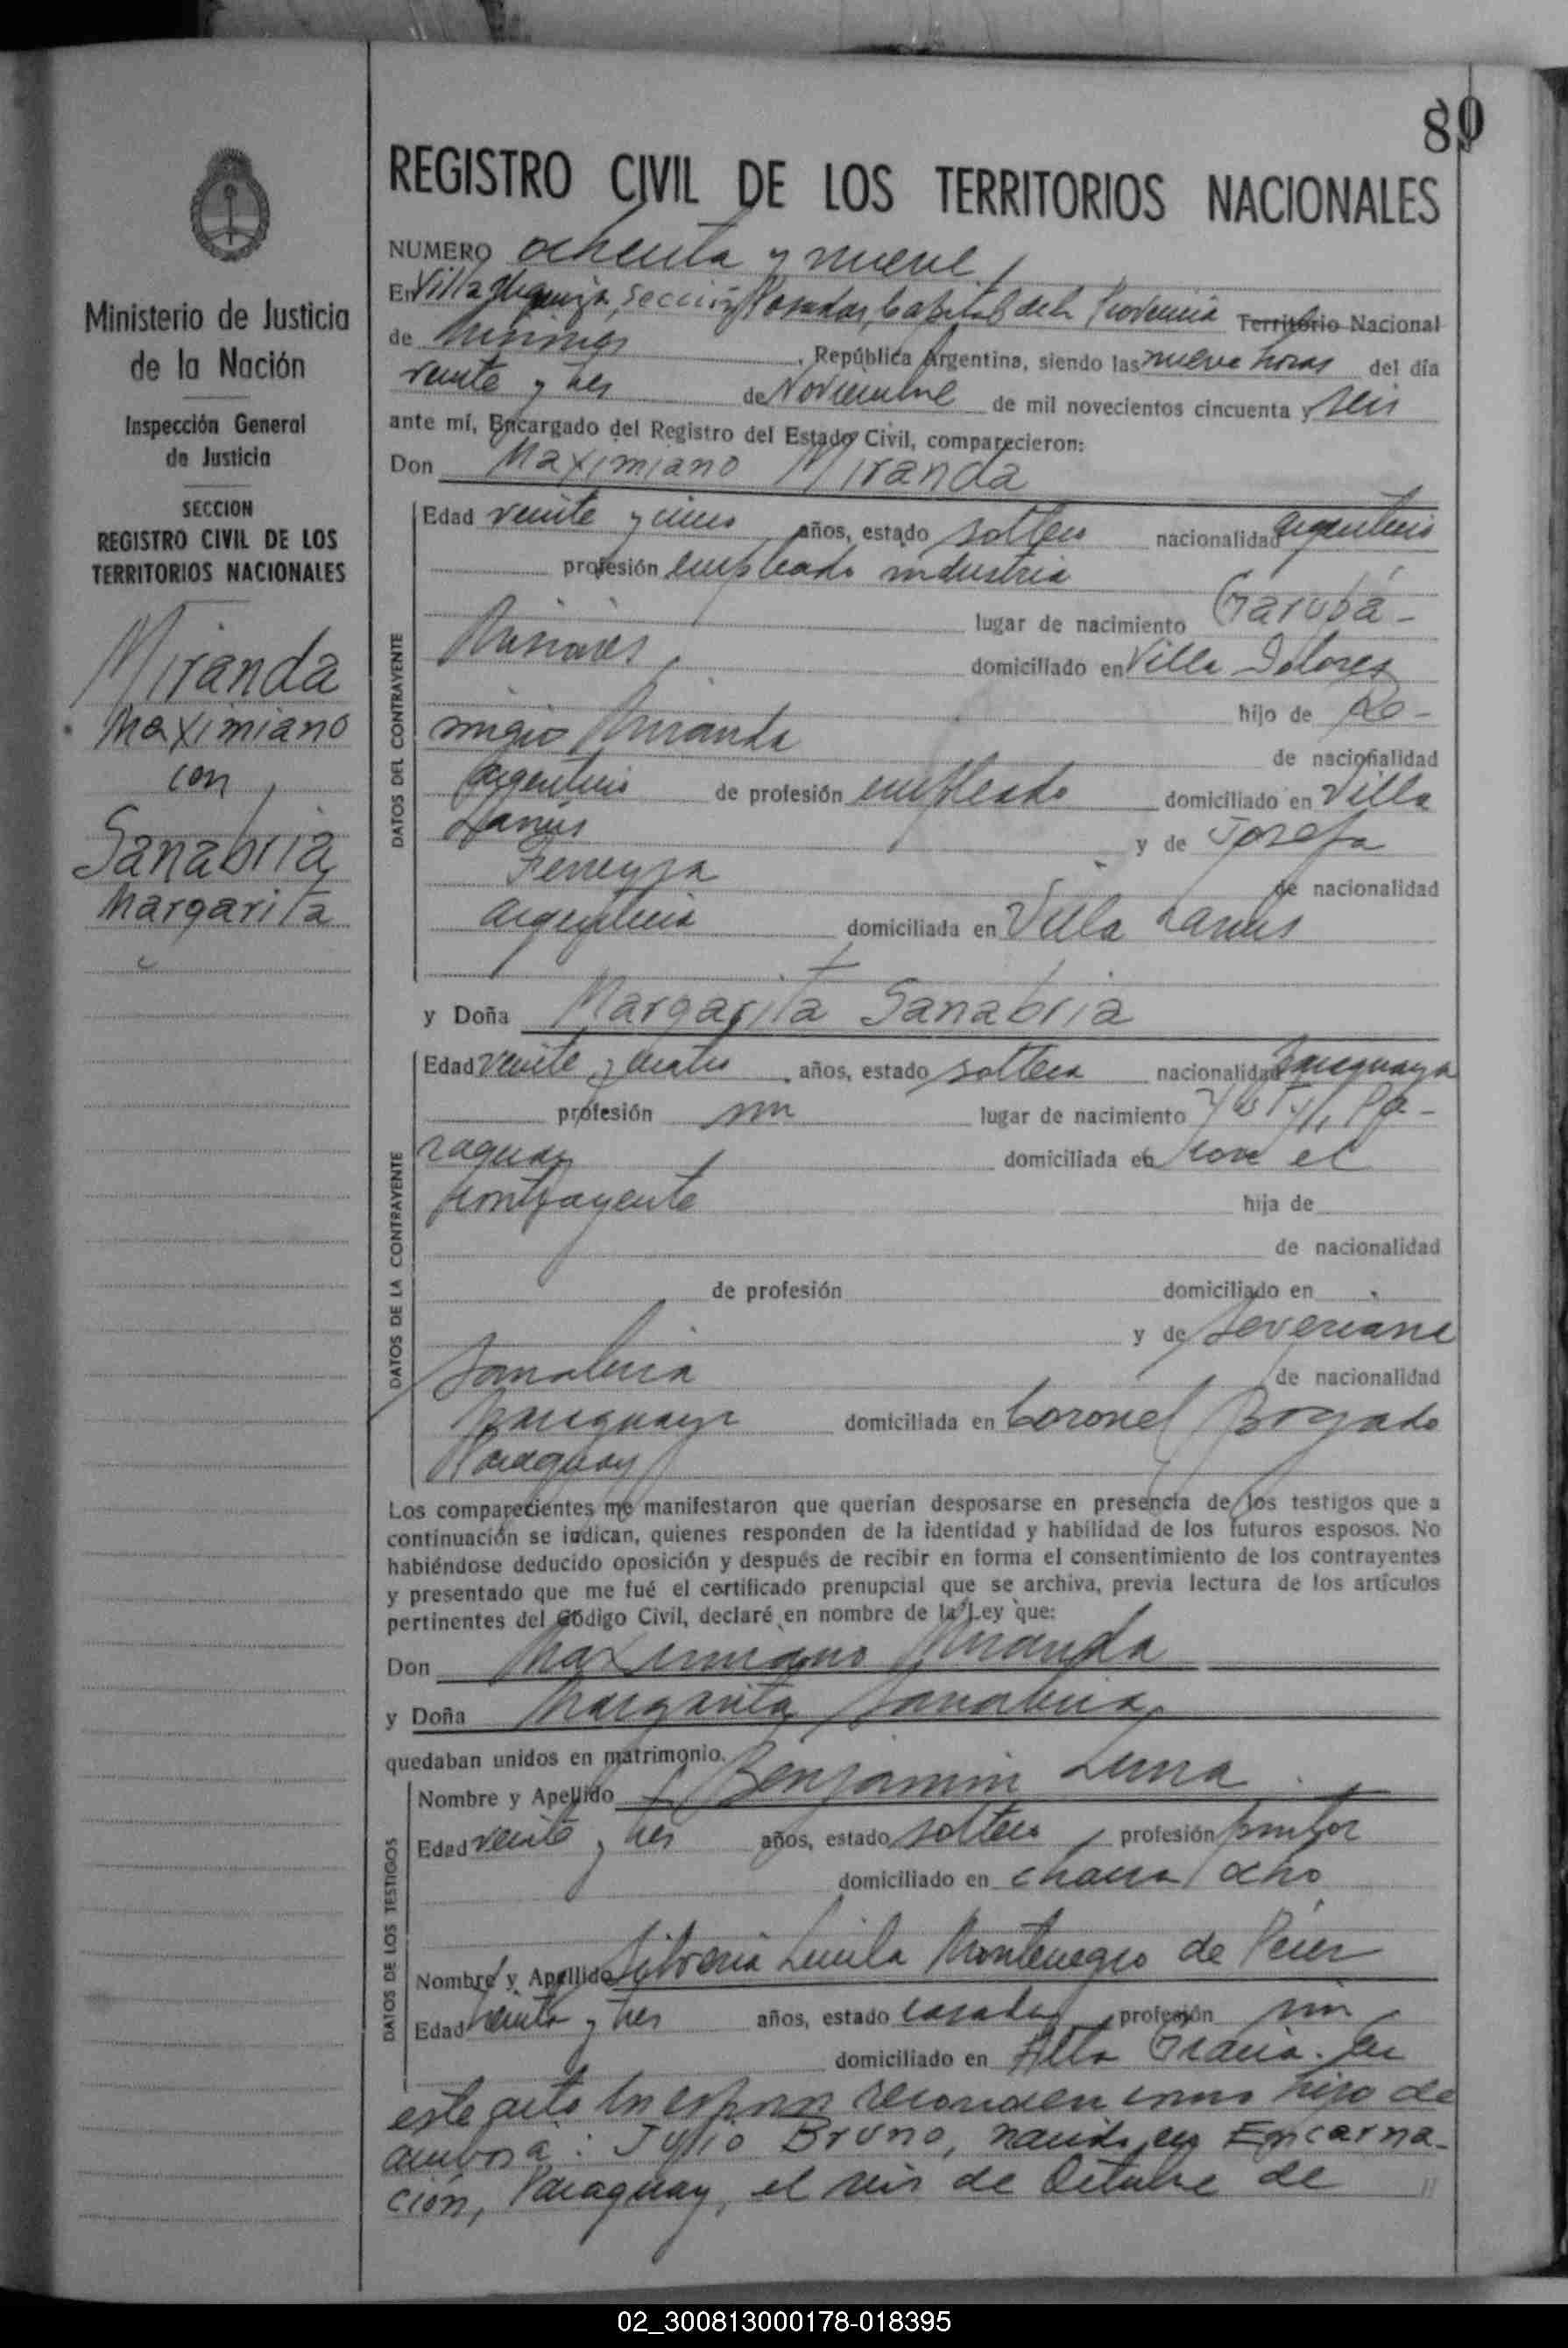 89
REGISTRO CIVIL DE LOS TERRITORIOS NACIONALES
Ministerio de Justicia
de la Nación
Inspección General
de Justicia
SECCION
REGISTRO CIVIL DE LOS
TERRITORIOS NACIONALES
Miranda
Maximiano
con
Sanabria
Margarita
NUMERO ochenta y nueve
En Villa sección Posadas, Capital de la Provincia Territorio Nacional
de Misiones, República Argentina, siendo las nueve horas del día
veinte y tres de Noviembre de mil novecientos cincuenta y seis
ante mí, Encargado del Registro del Estado Civil, comparecieron:
Don Maximiano Miranda
DATOS DEL CONTRAYENTE
Edad veinte y cinco años, estado soltero nacionalidad argentino
profesión empleado industria
lugar de nacimiento Garupá-
Misiones, domiciliado en Villa Dolores
hijo de Re-
migio Miranda de nacionalidad
argentino de profesión empleado domiciliado en Villa
Lanus y de Josefa
Ferreyra de nacionalidad
argentina domiciliada en Villa Lanus
y Doña Margarita Sanabria
DATOS DE LA CONTRAYENTE
Edad veinte y cuatro años, estado soltera nacionalidad paraguaya
profesión sin lugar de nacimiento Pa-
raguay domiciliada en con el
contrayente hija de
de nacionalidad
de profesión domiciliado en
y de Severiana
Sanabria de nacionalidad
paraguaya domiciliada en Coronel Bogado
Paraguay
Los comparecientes me manifestaron que querían desposarse en presencia de los testigos que a
continuación se indican, quienes responden de la identidad y habilidad de los futuros esposos. No
habiéndose deducido oposición y después de recibir en forma el consentimiento de los contrayentes
y presentado que me fué el certificado prenupcial que se archiva, previa lectura de los artículos
pertinentes del Código Civil, declaré en nombre de la Ley que:
Don Maximiano Miranda
y Doña Margarita Sanabria
quedaban unidos en matrimonio.
DATOS DE LOS TESTIGOS
Nombre y Apellido Benjamin Luna
Edad veinte y tres años, estado soltero profesión pintor
domiciliado en chacra ocho
Nombre y Apellido Silveria Lucila Montenegro de Perez
Edad treinta y tres años, estado casada, profesión sin
domiciliado en Alta Gracia. En
este acto los esposos reconocen como hijo de
ambos a: Julio Bruno, nacido en Encarna-
ción, Paraguay, el seis de Octubre de //
02_300813000178-018395